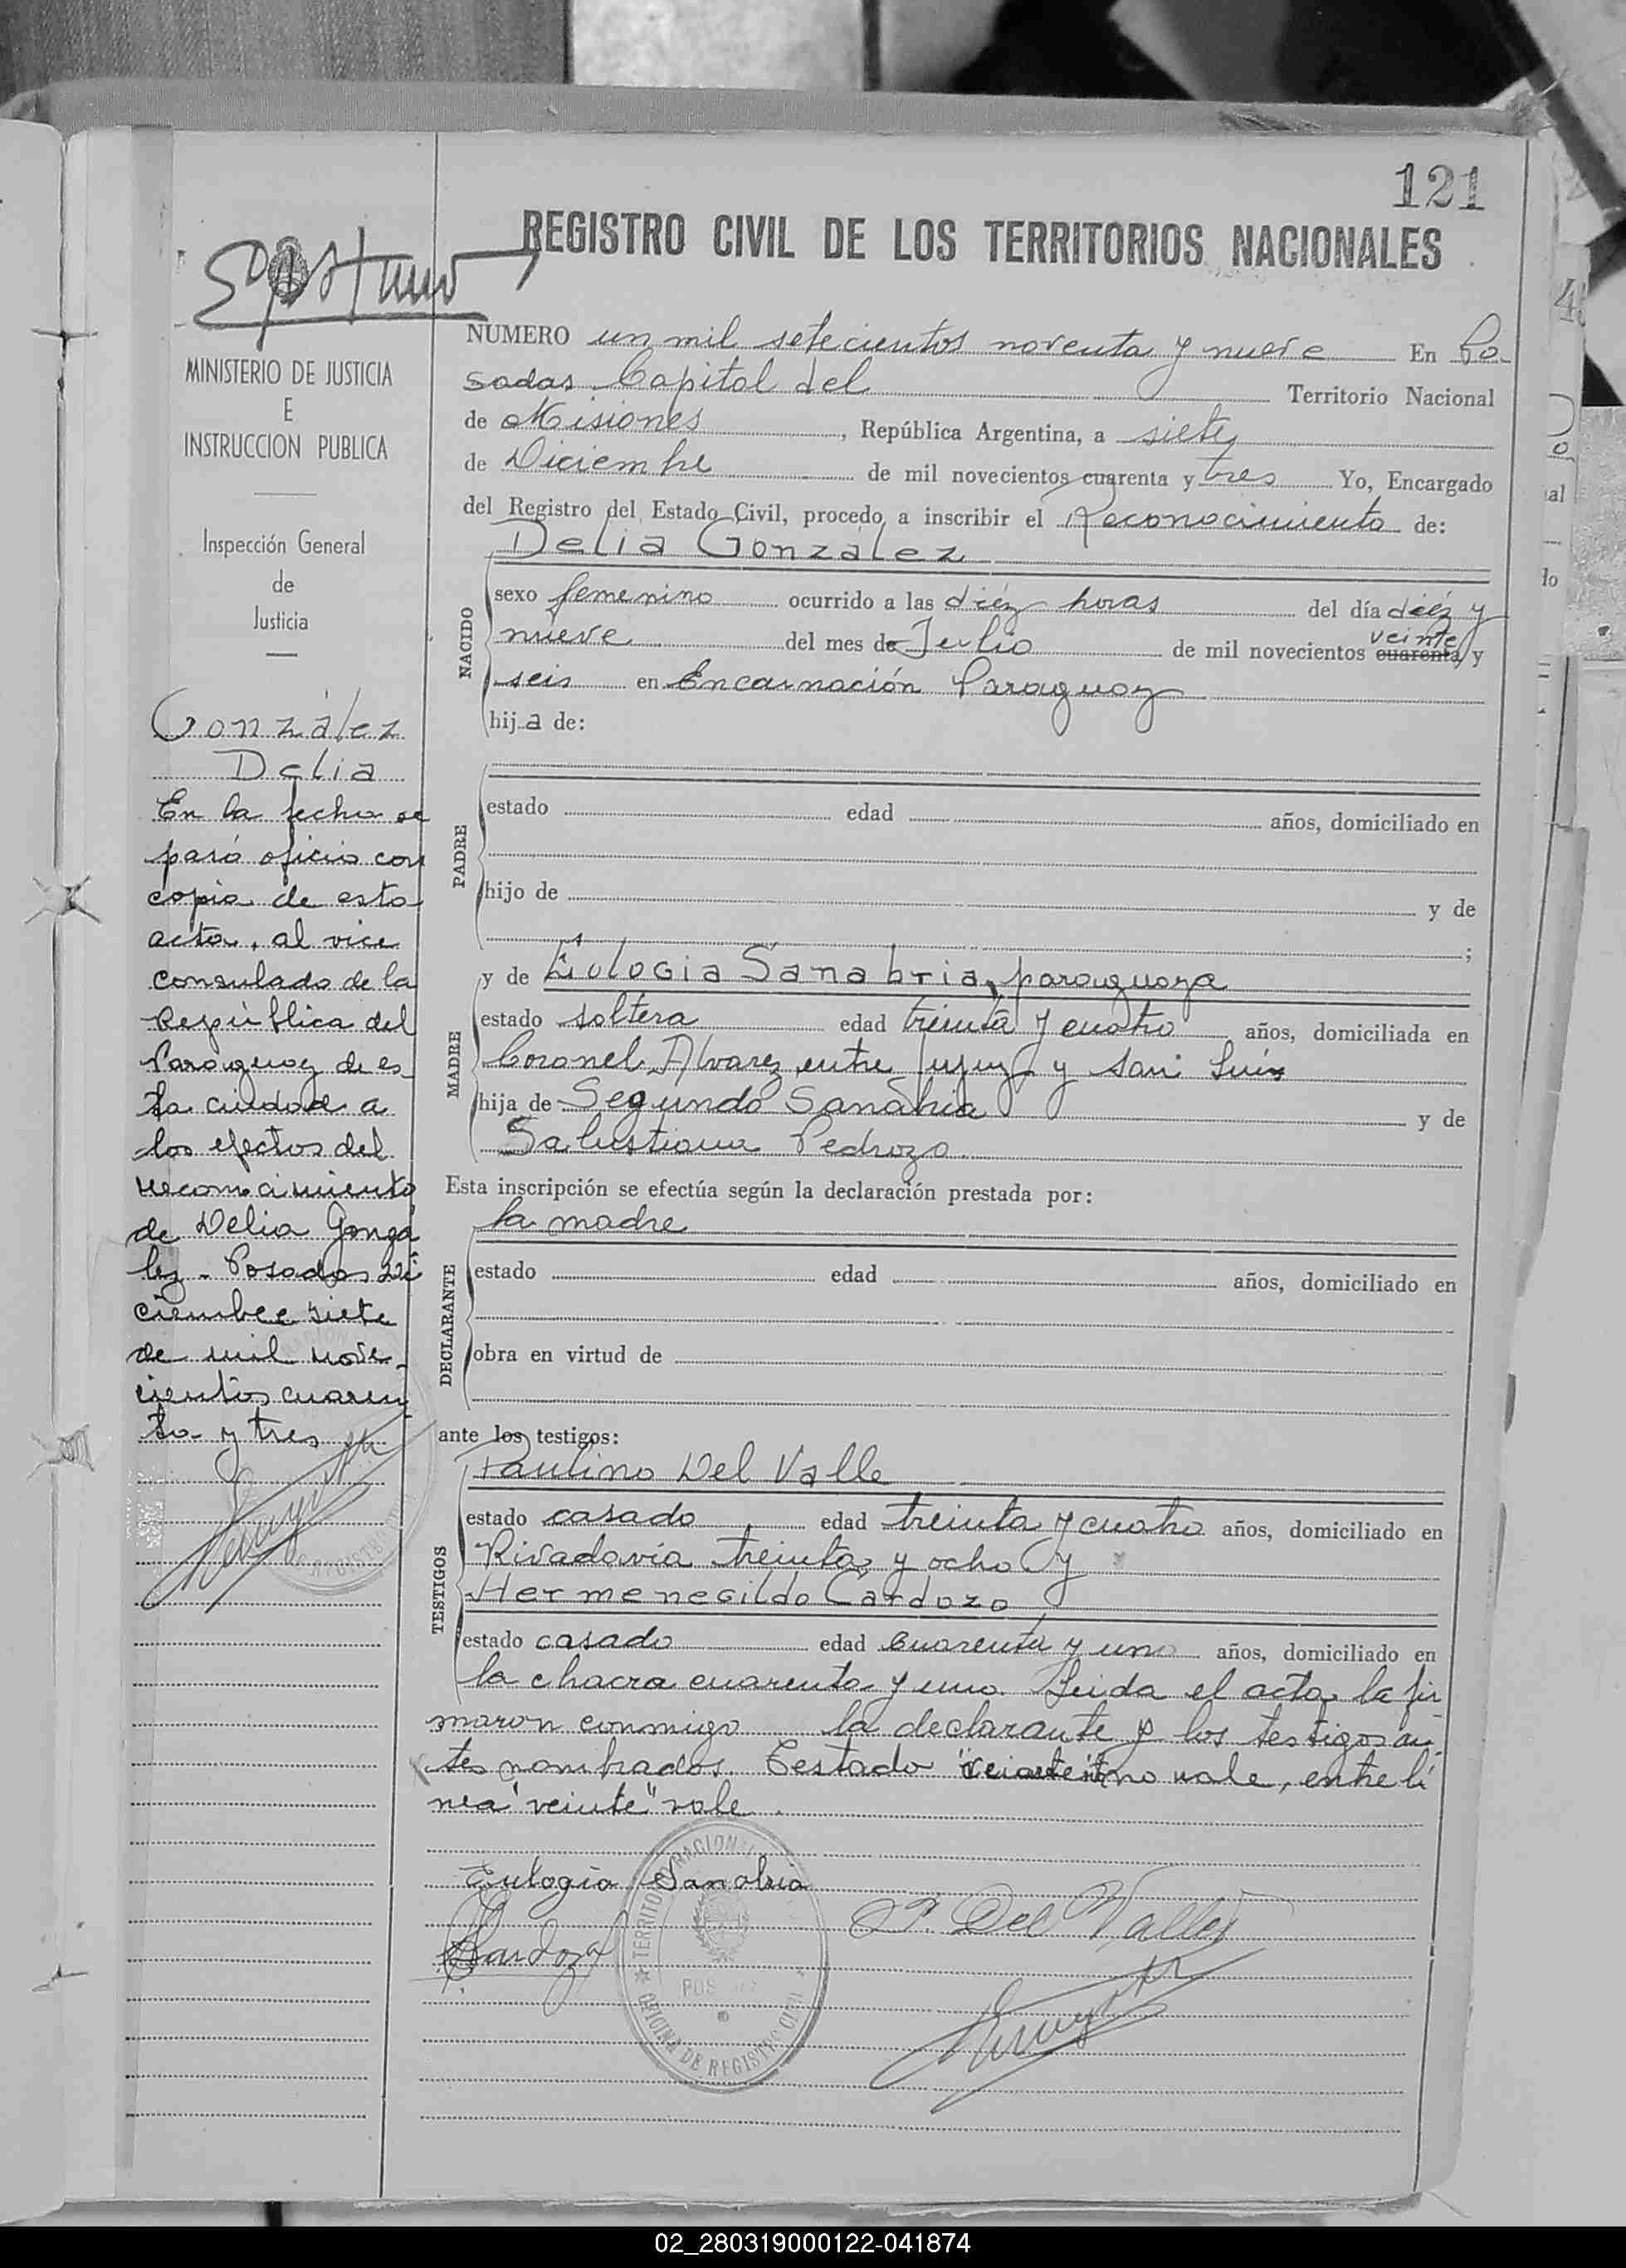 121
REGISTRO CIVIL DE LOS TERRITORIOS NACIONALES
MINISTERIO DE JUSTICIA
E
INSTRUCCION PUBLICA
Inspección General
de
Justicia
González
Delia
En la fecha se
pasó oficio con
copia de esta
acta, al vice
consulado de la
República del
Paraguay de es-
ta ciudad a
los efectos del
reconocimiento
de Delia Gonzá
lez - Posadas Di
ciembre siete
de mil nove-
cientos cuaren
ta y tres
NUMERO un mil setecientos noventa y nueve En Po-
sadas Capital del Territorio Nacional
de Misiones, República Argentina, a siete
de Diciembre de mil novecientos cuarenta y tres Yo, Encargado
del Registro del Estado Civil, procedo a inscribir el Reconocimiento de:
Delia González
NACIDO
sexo femenino ocurrido a las diéz horas del día diéz y
nueve del mes de Julio de mil novecientos cuarenta veinte y
seis en Encarnación Paraguay
hija de:
PADRE
estado edad años, domiciliado en
hijo de y de
;
y de Eulogia Sanabria, paraguaya
MADRE
estado soltera edad treinta y cuatro años, domiciliada en
Coronel Alvarez entre Jujuy y San Luis
hija de Segundo Sanabria y de
Salustiana Pedrozo
Esta inscripción se efectúa según la declaración prestada por:
la madre
DECLARANTE
estado edad años, domiciliado en
obra en virtud de
ante los testigos:
TESTIGOS
Paulino Del Valle
estado casado edad treinta y cuatro años, domiciliado en
Rivadavia treinta y ocho y
Hermenegildo Cardozo
estado casado edad cuarenta y uno años, domiciliado en
la chacra cuarenta y uno. Leida el acta la fir
maron conmigo la declarante y los testigos an
tes nombrados. Testado no vale, entre lí
nea "veinte" vale.
Eulogia Sanabria
P. Del Valle
Cardozo
OFICINA DE REGISTRO CIVIL
02_280319000122-041874